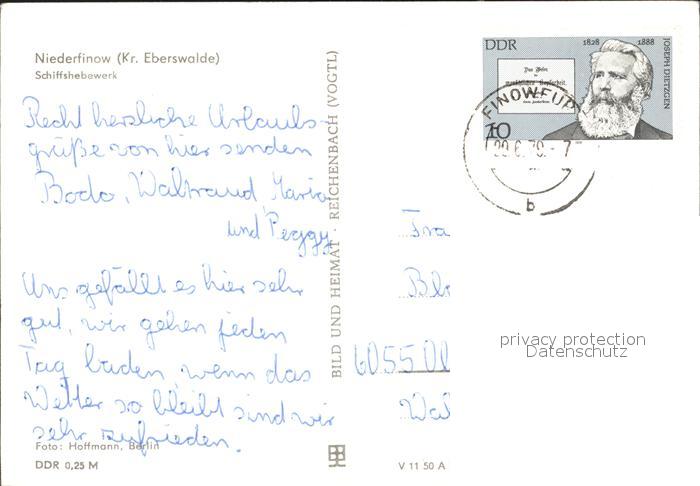 Niederfinow (Kr. Eberswalde)
Schiffshebewerk
Recht herzliche Urlaubs-
grüße von hier senden
Bodo, Waltraud, Mario
und Peggy.
Uns gefällt es hier sehr
gut, wir gehen jeden
Tag baden, wenn das
Wetter so bleibt sind wir
sehr zufrieden.
Foto: Hoffmann, Berlin
DDR 0,25 M
BILD UND HEIMAT · REICHENBACH (VOGTL)
V 11 50 A
DDR
1828 1888
JOSEPH DIETZGEN
Das Wesen
der
menschlichen Kopfarbeit.
10
FINOWFU
b
Fra
Blu
6055 Ob
Wal
privacy protection
Datenschutz